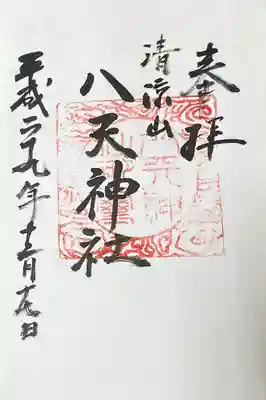 奉拝
清流山
八天神社
平成二九年十二月十九日